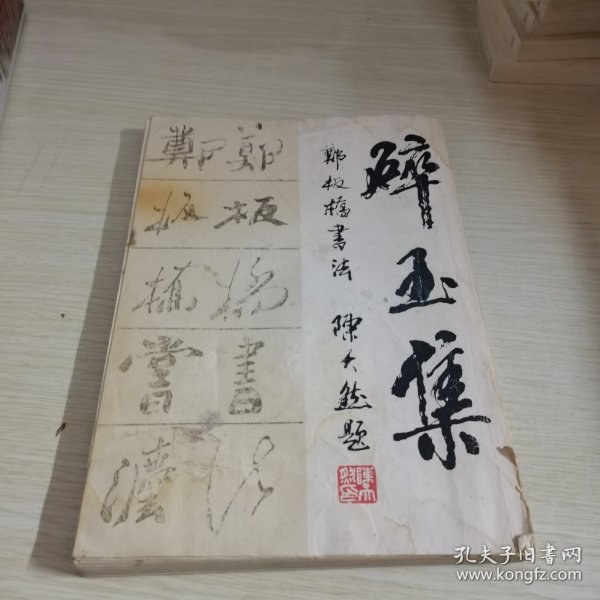 碎玉集
鄭板橋書法
陳大然題
鄭板橋書法
鄭板橋書法
孔夫子旧書网
www.kongfz.com